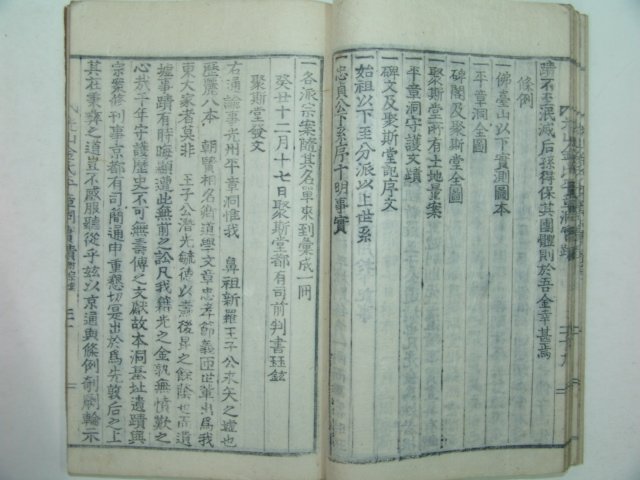 蹟不至泯減后孫得保其團體則於吾金幸甚焉
條例
一佛臺山以下實測圖本
一平章洞全圖
一碑閣及聚斯堂全圖
一聚斯堂所有土地量案
一平章洞守護文蹟
一碑文及聚斯堂記序文
一始祖以下至分派以上世系
一忠貞公下系序十明事實
一各派宗案隨其名單來到彙成一冊
癸丑十二月十七日聚斯堂都有司前判書珏鉉
聚斯堂發文
右通諭事光州平章洞惟我 鼻祖新羅王子公來矣之墟也
歷麗八本 朝賢相名卿道學文章忠孝節義世輩出爲我
東大家者莫非 王子公潛光毓德以壽後昆之餘蔭也而遺
墟事蹟有時晦顯遭此無前之訟凡我籍光之金孰無憤歎之
心哉千年守護歷史不可無壽傳之文獻故本洞基址遺蹟與
宗案修刊事京都有司簡通申重懇切寔出於爲先敦后之上
其在秉彛之道豈不感服聽從乎玆以京通與條例剞劂輪示